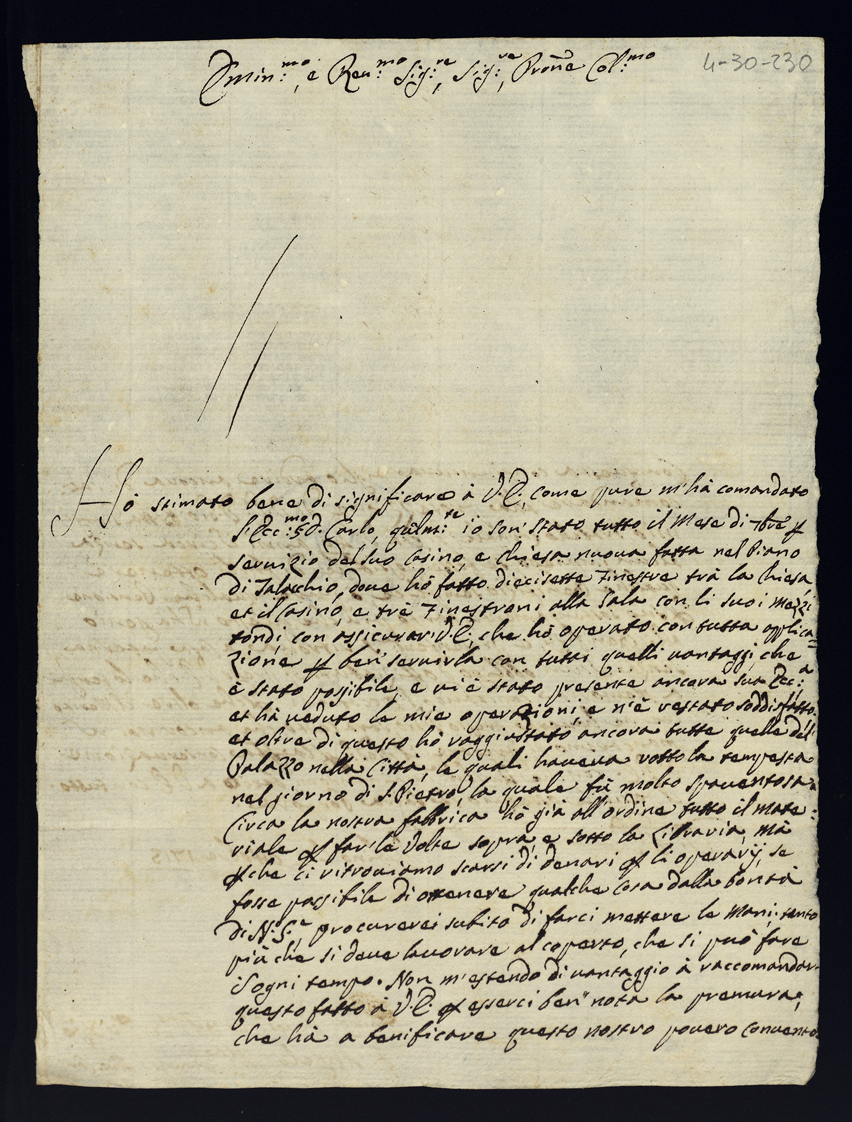 4-30-230
Emin:mo, e Reu:mo Sig:re, Sig:re, Prone Col:mo
Hò stimato bene di significare à V.E., come pure m'hà comandato
l'Ecc:mo S.D. Carlo, qu̅lm:te io son' stato tutto il Mese di 7bre p
seruizio del suo Casino, e Chiesa nuoua fatta nel Piano
di Salacchio, doue hò fatto diecisette Finestre trà la Chiesa,
et il Casino, e trè Finestroni alla Sala con li suoi mezzi
tondi, con assicurar' V.E., che hò operato con tutta applica=
zione p ben' seruirla con tutti quelli uantaggi, che
è stato possibile, e ui è stato presente ancora sua Ecc:a
et hà ueduto le mie operazioni, e n'è restato soddisfatto,
et oltre di questo hò raggiustato ancora tutte quelle del
Palazzo nella Città, le quali haueua rotto la tempesta
nel giorno di S. Pietro, la quale fù molto spauentosa.
Circa la nostra fabbrica hò già all'ordine tutto il mate:
riale p far' le Volte sopra, e sotto la Libraria, mà
pche ci ritrouiamo scarsi di denari p li operarij, se
fosse possibile di ottenere qualche cosa dalla bontà
di N: S:e, procurerei subito di farci mettere le mani, tanto
più che si deue lauorare al coperto, che si può fare
d'ogni tempo. Non m'estendo di uantaggio à raccomandar
questo fatto à V.E. p esserci ben' nota la premura,
che hà a benificare questo nostro pouero Conuento